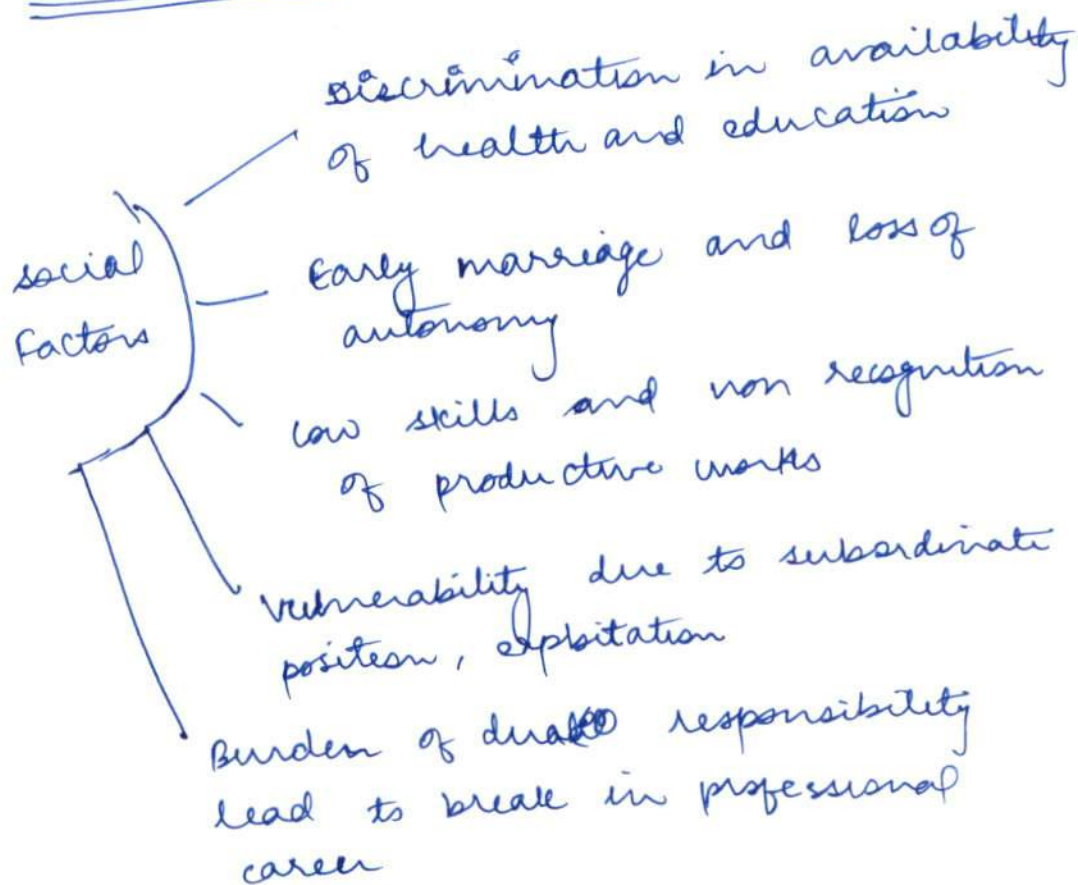 Discrimination in availability
of health and education
social
Factors
Early marriage and loss of
autonomy
low skills and non recognition
of productive works
vulnerability due to subordinate
position, exploitation
Burden of dual responsibility
lead to break in professional
career